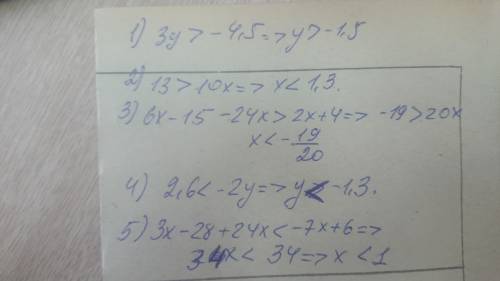 1) 3y > -4,5 => y > -1,5
2) 13 > 10x => x < 1,3.
3) 6x - 15 - 24x > 2x + 4 => -19 > 20x
x < - 19/20
4) 2,6 < -2y => y < -1,3.
5) 3x - 28 + 24x < -7x + 6 =>
34x < 34 => x < 1